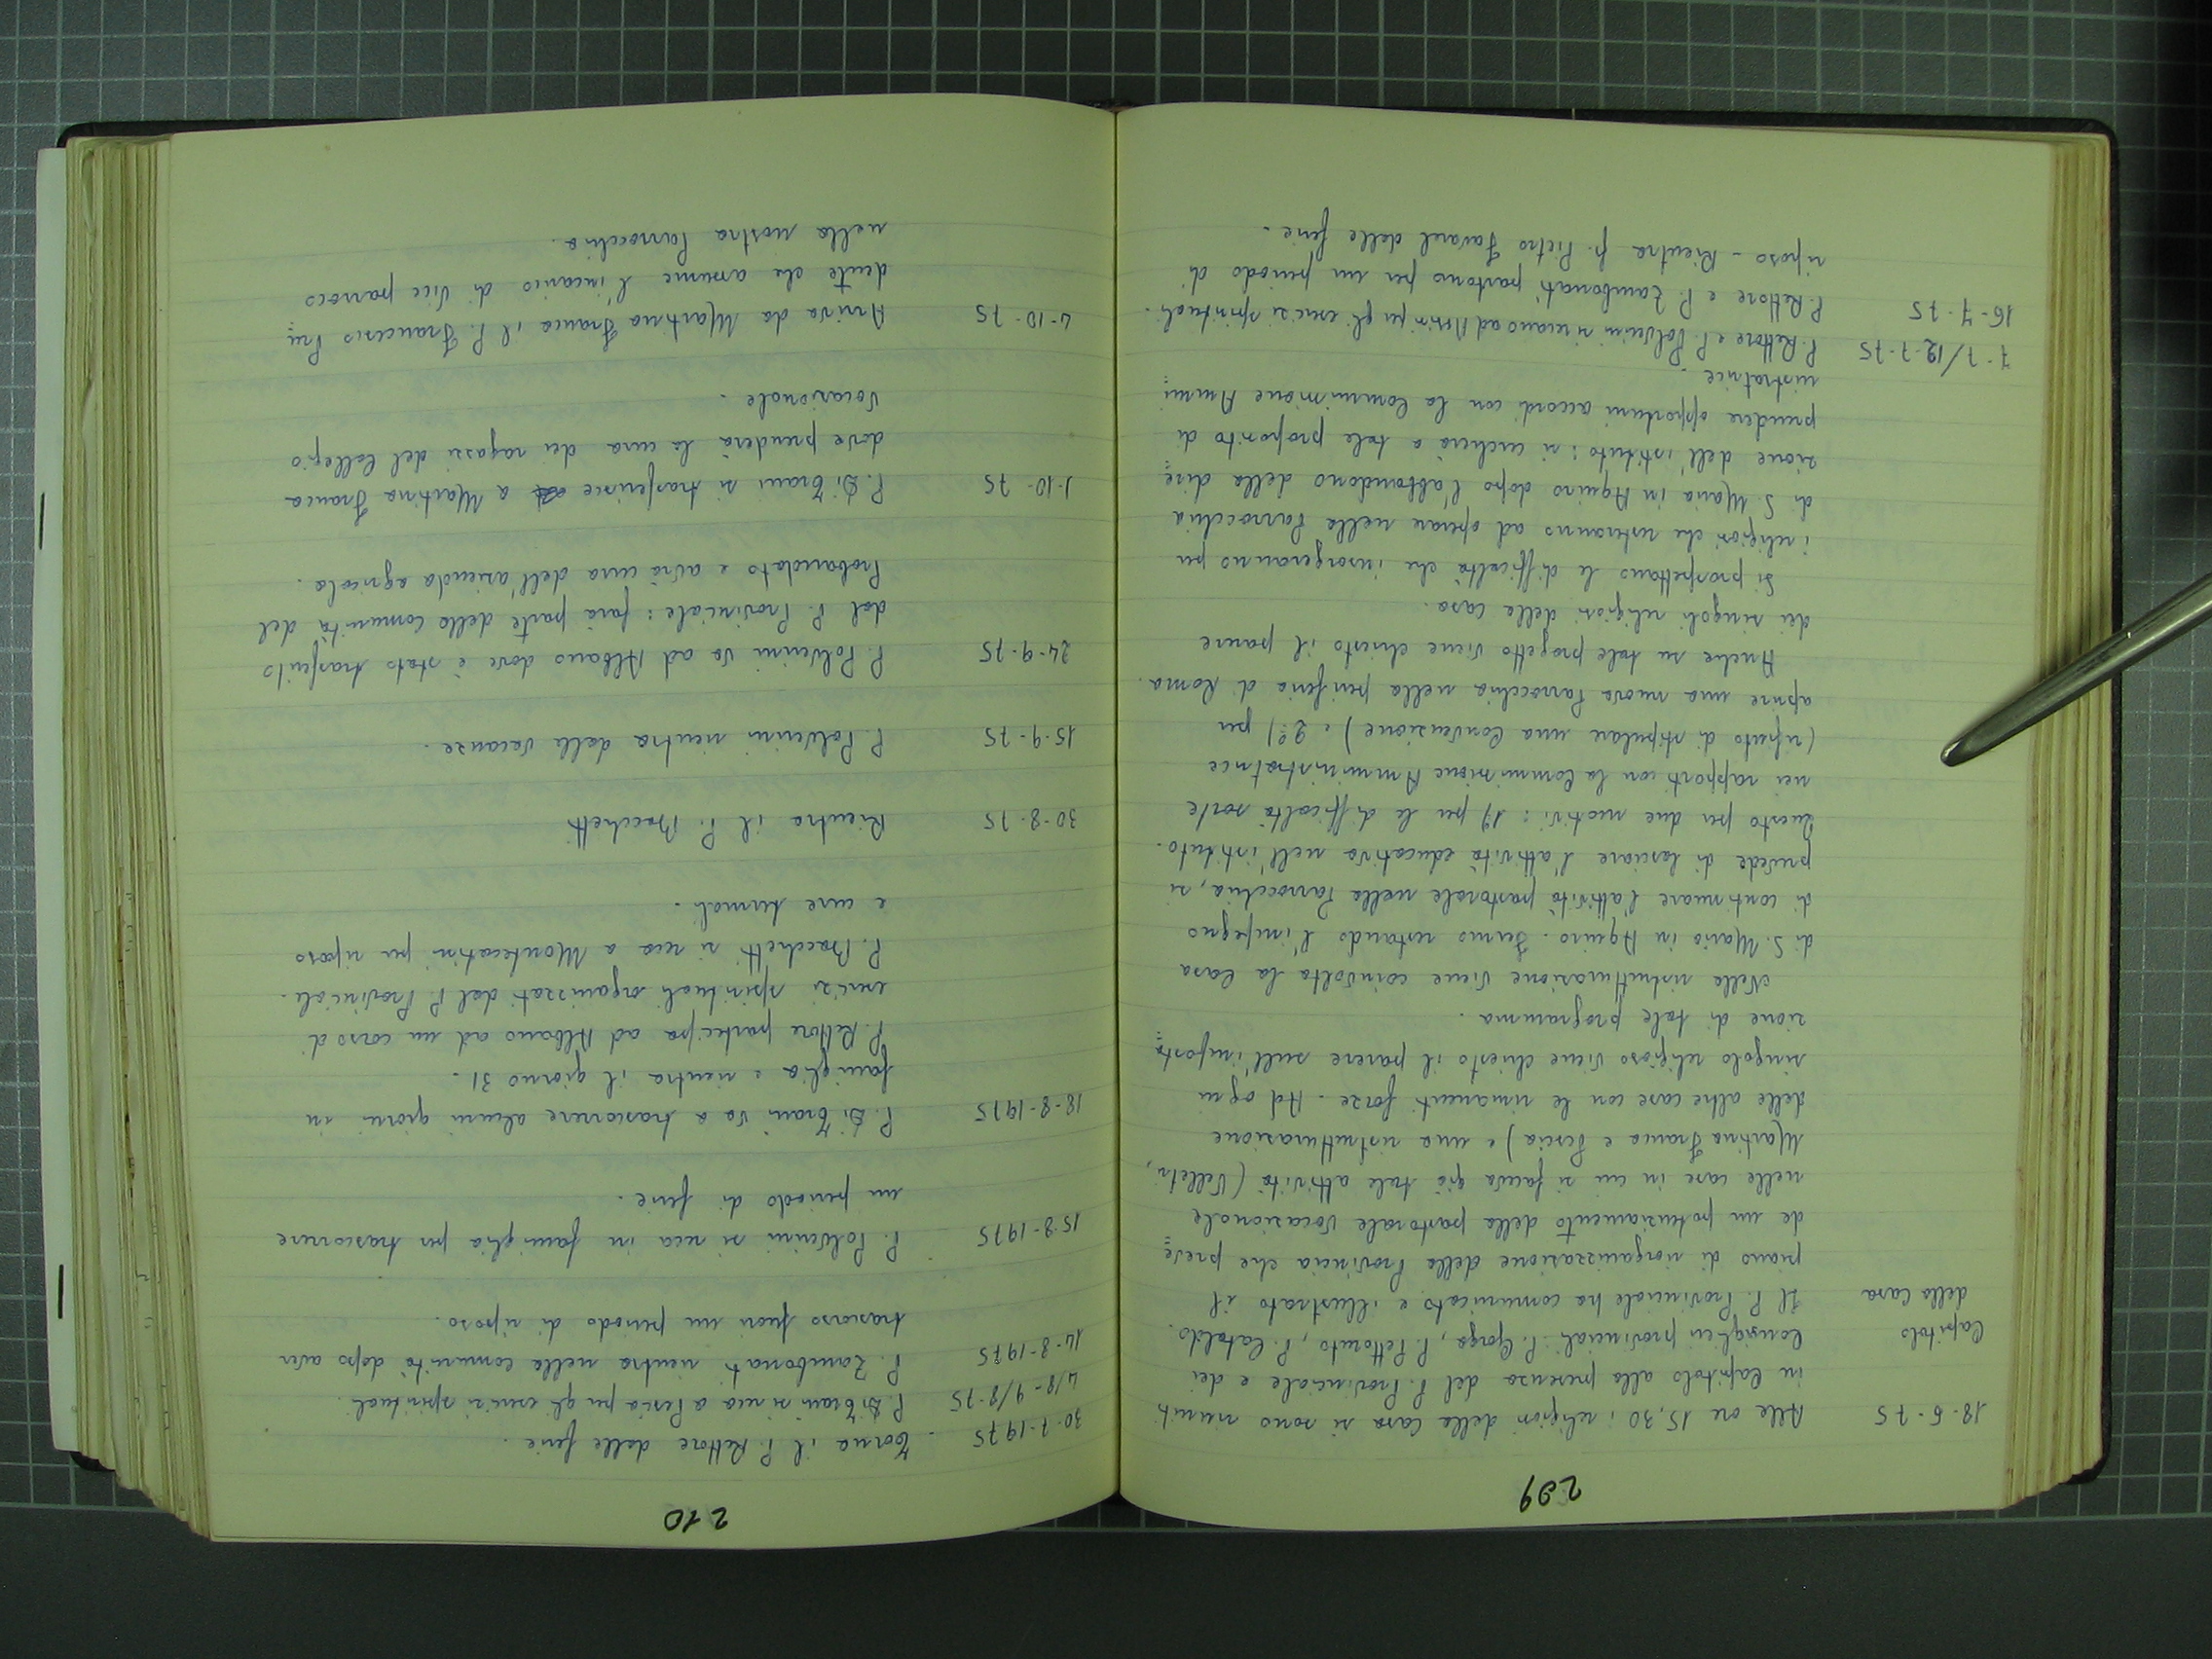 209
18-6-75 Alle ore 15,30 i religiosi della Casa si sono riuniti
in Capitolo alla presenza del P. Provinciale e dei
Capitolo Consiglieri provinciali P. Gorga, P. Pettoruto, P. Cataldo.
della Casa Il P. Provinciale ha comunicato e illustrato il
piano di riorganizzazione della Provincia che preve=
de un potenziamento della pastorale vocazionale
nelle case in cui si faceva già tale attività (Velletri,
Martina Franca e Pescia) e una ristrutturazione
delle altre case con le rimanenti forze. Ad ogni
singolo religioso viene chiesto il parere sull'imposta=
zione di tale programma.
Nella ristrutturazione viene coinvolta la Casa
di S. Maria in Aquiro. Fermo restando l'impegno
di continuare l'attività pastorale nella Parrocchia, si
prevede di lasciare l'attività educativa nell'istituto.
Questo per due motivi: 1°) per le difficoltà sorte
nei rapporti con la Commissione Amministratrice
(rifiuto di stipulare una Convenzione) e 2°) per
aprire una nuova Parrocchia nella periferia di Roma.
Anche su tale progetto viene chiesto il parere
dei singoli religiosi della casa.
Si prospettano le difficoltà che insorgeranno per
i religiosi che resteranno ad operare nella Parrocchia
di S. Maria in Aquiro dopo l'abbandono della dire=
zione dell'istituto: si cercherà a tale proposito di
prendere opportuni accordi con la Commissione Ammi=
nistratrice -
7-7/12-7-75 P. Rettore e P. Polverini si recano ad Assisi per gli esercizi spirituali.
16-7-75 P. Rettore e P. Zambonati partono per un periodo di
riposo - Rientra p. Pietro Favarel dalle ferie -
210
30-7-1975 Torna il P. Rettore dalle ferie.
4/8-9/8-75 P. Di Trani si reca a Pescia per gli esercizi spirituali.
14-8-1975 P. Zambonati rientra nella comunità dopo aver
trascorso fuori un periodo di riposo.
15-8-1975 P. Polverini si reca in famiglia per trascorrere
un periodo di ferie.
18-8-1975 P. Di Trani va a trascorrere alcuni giorni in
famiglia e rientra il giorno 31.
P. Rettore partecipa ad Albano ad un corso di
esercizi spirituali organizzati dal P. Provinciale.
P. Bacchetti si reca a Montecatini per riposo
e cure termali.
30-8-75 Rientra il P. Bacchetti
15-9-75 P. Polverini rientra dalle vacanze.
24-9-75 P. Polverini va ad Albano dove è stato trasferito
dal P. Provinciale: farà parte della comunità del
Probandato e avrà cura dell'azienda agricola.
1-10-75 P. Di Trani si trasferisce a Martina Franca
dove prenderà la cura dei ragazzi del Collegio
Vocazionale.
4-10-75 Arriva da Martina Franca il P. Francesco Pru=
dente che assume l'incarico di Vice parroco
nella nostra Parrocchia.